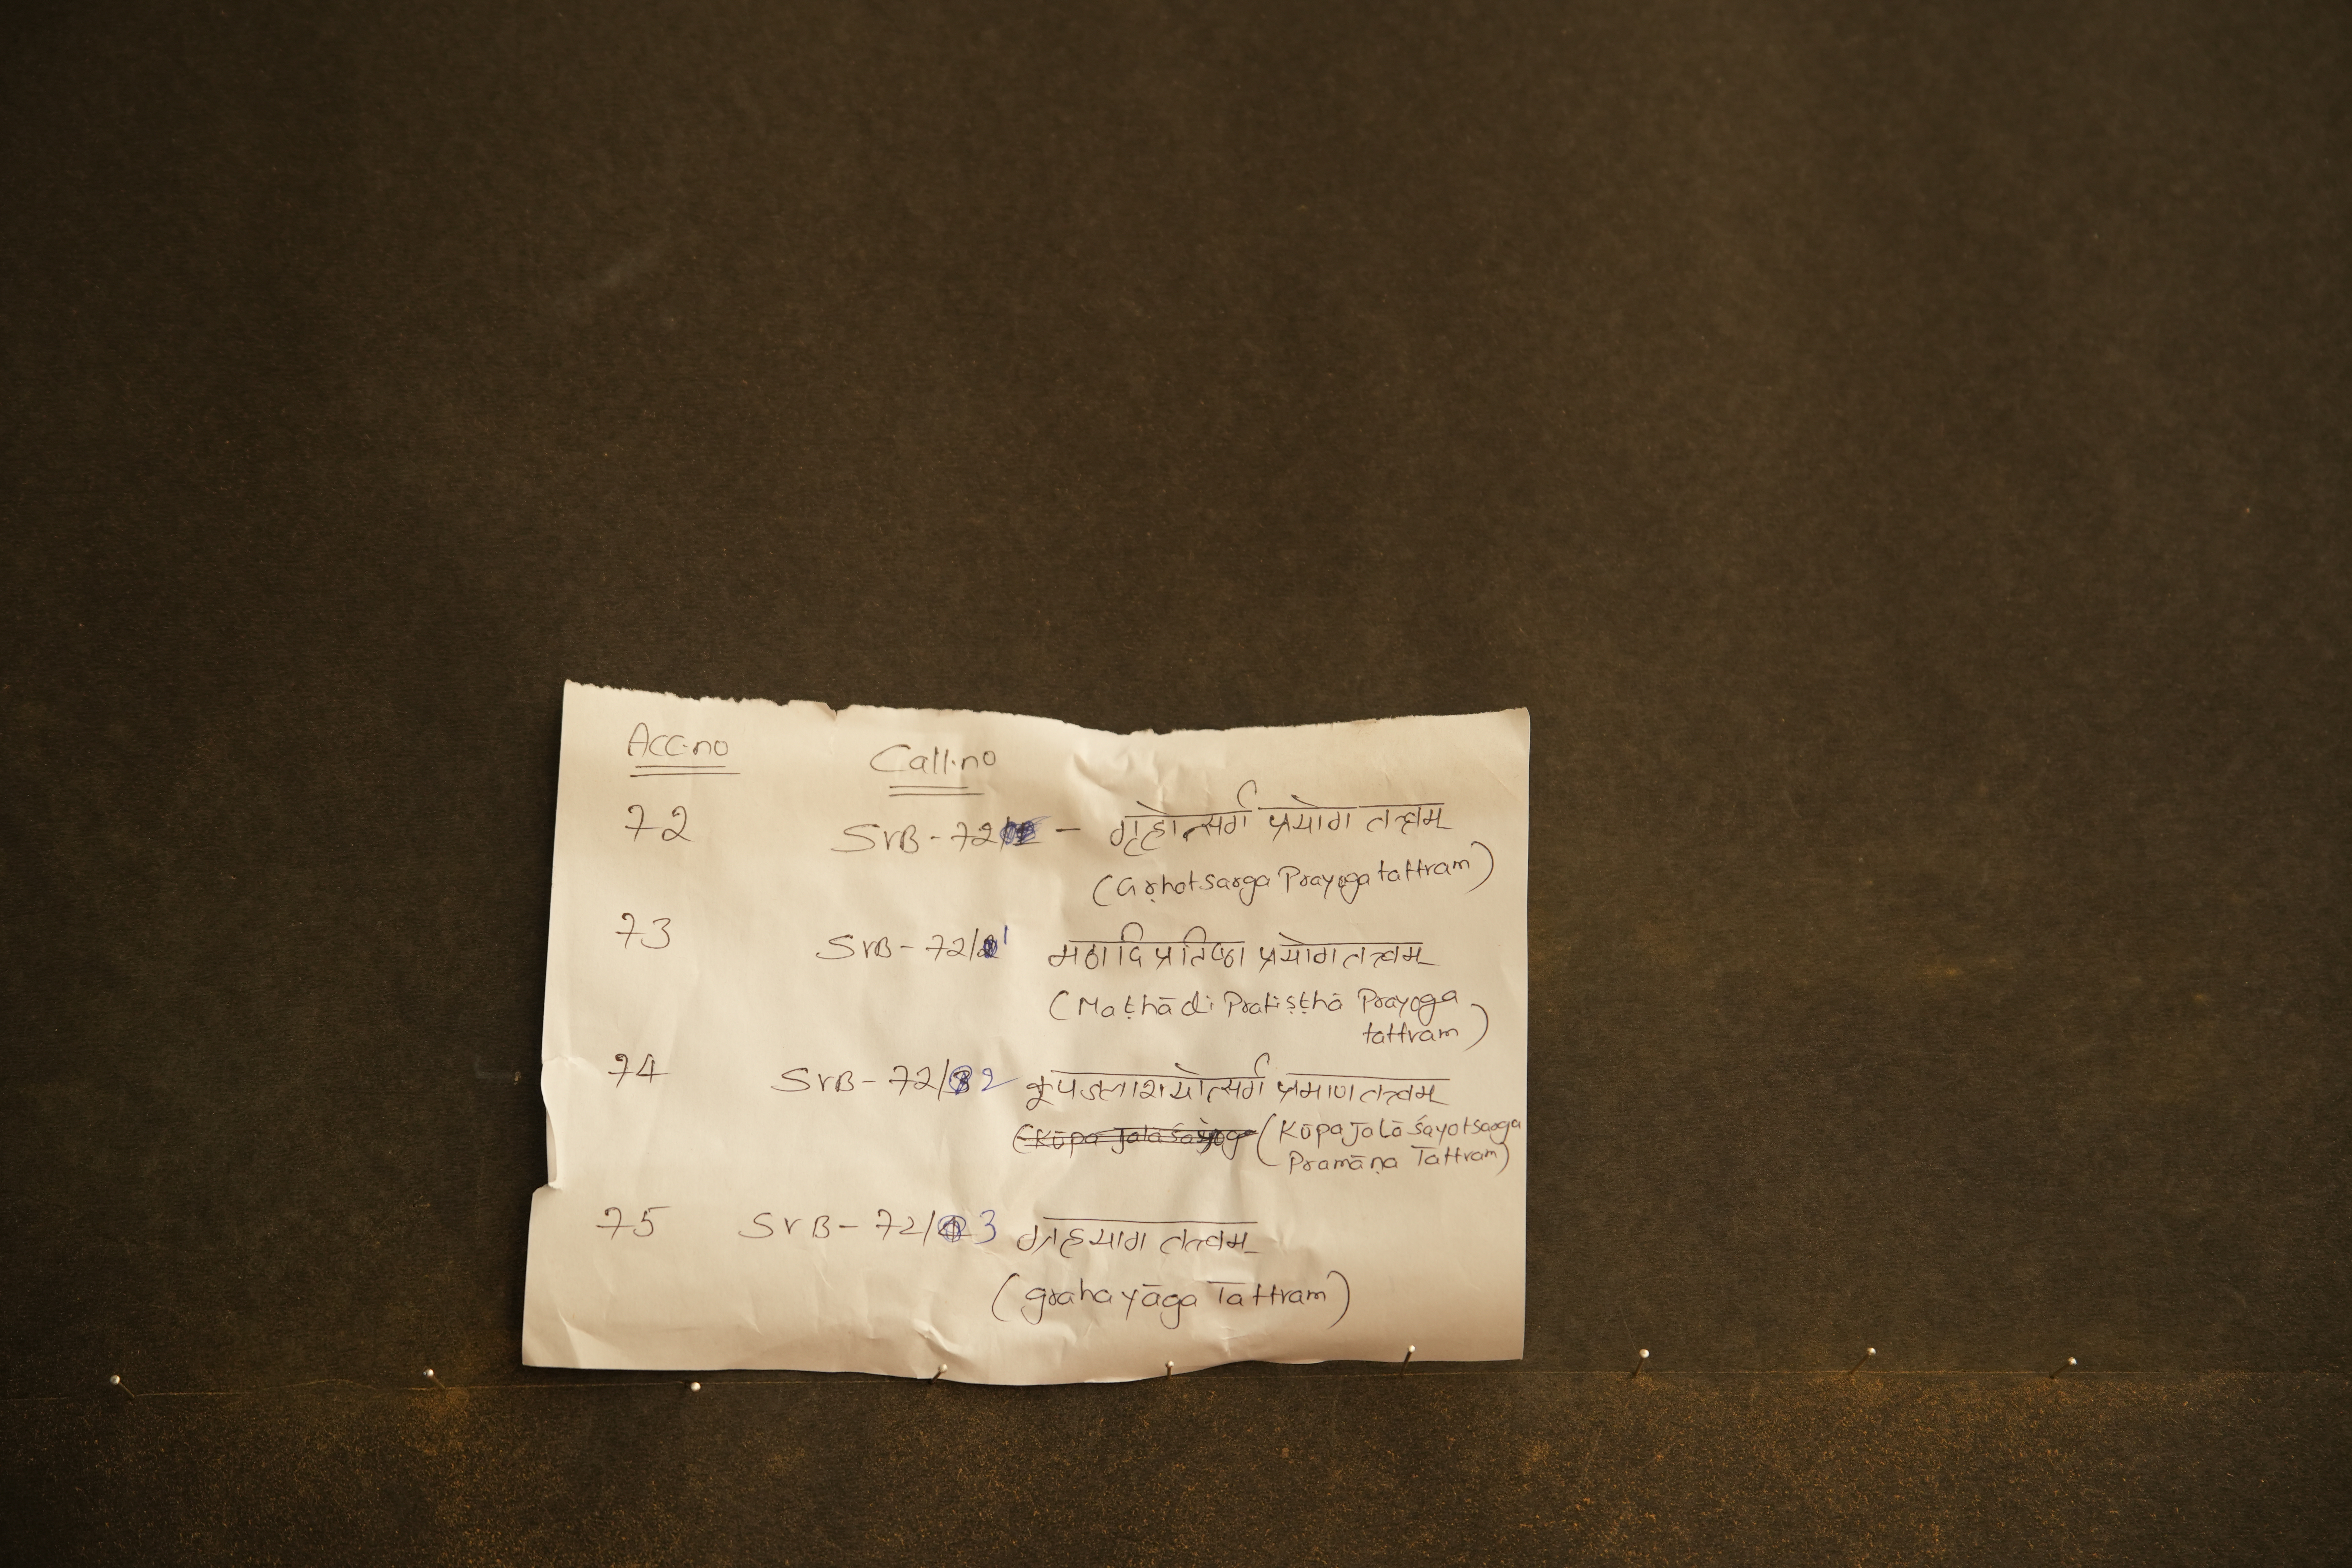 Acc.no Call.no
72 SVB - 72 - गृहोत्सर्ग प्रयोग तत्त्वम्
(Gṛhotsarga Prayoga tattvam)
73 SVB - 72/1 मठादि प्रतिष्ठा प्रयोग तत्त्वम्
(Maṭhādi Pratiṣṭhā Prayoga
tattvam)
74 SVB - 72/2 कूपजलाशयोत्सर्ग प्रमाण तत्त्वम्
(Kūpa Jalāśayotsarga
Pramāṇa Tattvam)
75 SVB - 72/3 ग्रहयाग तत्त्वम्
(grahayāga Tattvam)